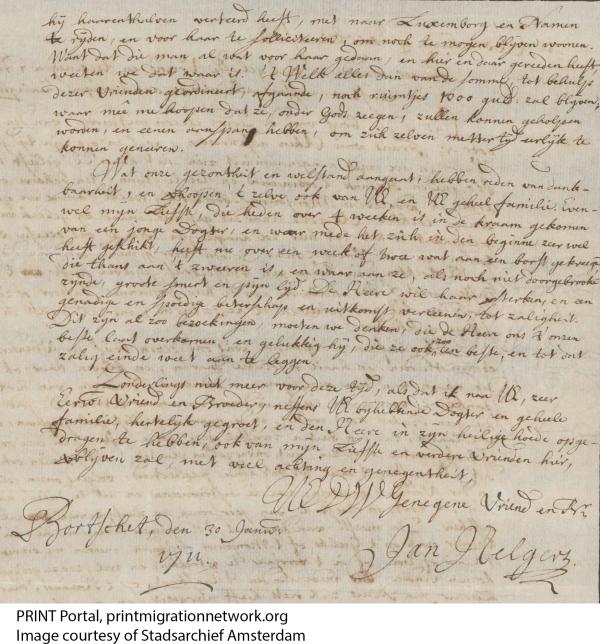 hij haarenthalven verteerd heeft, met naar Luxemborg en Namen
te rijden, en voor haar te solliciteeren, om noch te mogen blijven woonen.
Want dat die man al wat voor haar gedaan, en hier en daar gereeden heeft
weeten we dat waar is. 't Welk alles dan van de somme, tot behulp
dezer Vrienden geordineert, afgaande, noch ruimtjes 1000 guld. zal blijven,
waar mêe we hoopen dat ze, onder Gods zeegen, zullen konnen geholpen
worden, en eenen aanspang hebben, om zich zelven mettertijd eerlijk te
konnen generen.
Wat onze gezontheit en welstand aangaat, hebben reden van dank-
baarheit, en hoopen 't zelve ook van UE, en UE geheel familie. Even-
wel mijn Liefste, die heden over 4 weeken is in de kraam gekomen
van een jonge Dogter, en waar mede het zich in den beginne zeer wel
heeft geschikt, heeft nu over een week of twee wat aan een borst gekreegen,
die thans aan 't zweeren is, en waar aan ze, als noch niet doorgebrooken
zynde, groote smert en pijn lijd. De Heere wil haar sterken, en een
genadig en spoedig beterschap en uitkomst verleenen, tot zaligheit.
Dit zijn al zoo bezoekingen, moeten we denken, die de Heere ons t'onzen
beste laat overkomen, en gelukkig hij, die ze ook zoo ten beste, en tot dat
zalig einde weet aan te leggen.
Zonderlings niet meer voor deze tijd, als dat ik naa UE, zeer
Eerw. Vriend en Broeder, neffens UE byhebbende Dogter en geheele
familie, hertelijk gegroet, en den Heere in zijn heilige hoede opge-
dragen te hebben, ook van mijn Liefste en verdere Vrienden hier,
verblijven zal met veel achting en genegentheit,
UE DW Genegene Vriend en Br.
Bortschet, den 30 Janw.
Jan Velgers.
PRINT Portal, printmigrationnetwork.org
Image courtesy of Stadsarchief Amsterdam